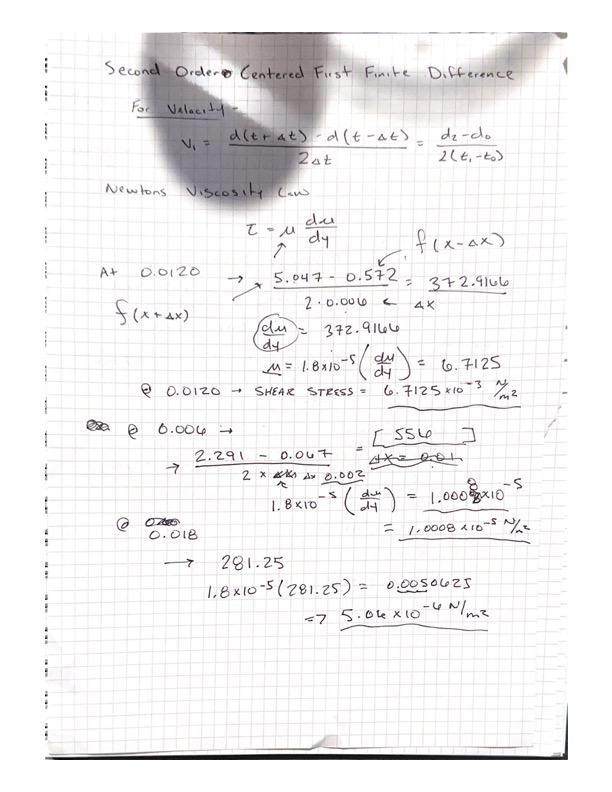 Second Order Centered First Finite Difference
For Velocity -
V₁ = d(t + Δt) - d(t - Δt) / 2Δt = d₂ - d₀ / 2(t₁ - t₀)
Newtons Viscosity Law
τ = μ du/dy
f(x - Δx)
At 0.0120 → 5.047 - 0.572 / 2 · 0.006 ← Δx = 372.9166
f(x + Δx)
du/dy = 372.9166
μ = 1.8x10⁻⁵ (du/dy) = 6.7125
@ 0.0120 → SHEAR STRESS = 6.7125 x10⁻³ N/m²
@ 0.006 →
→ 2.291 - 0.067 / 2 x Δx 0.002 = [556]
Δx = 0.01
1.8x10⁻⁵ (du/dy) = 1.0008x10⁻⁵
= 1.0008 x10⁻⁵ N/m²
@ 0.018
→ 281.25
1.8x10⁻⁵(281.25) = 0.0050625
=> 5.06 x10⁻⁶ N/m²